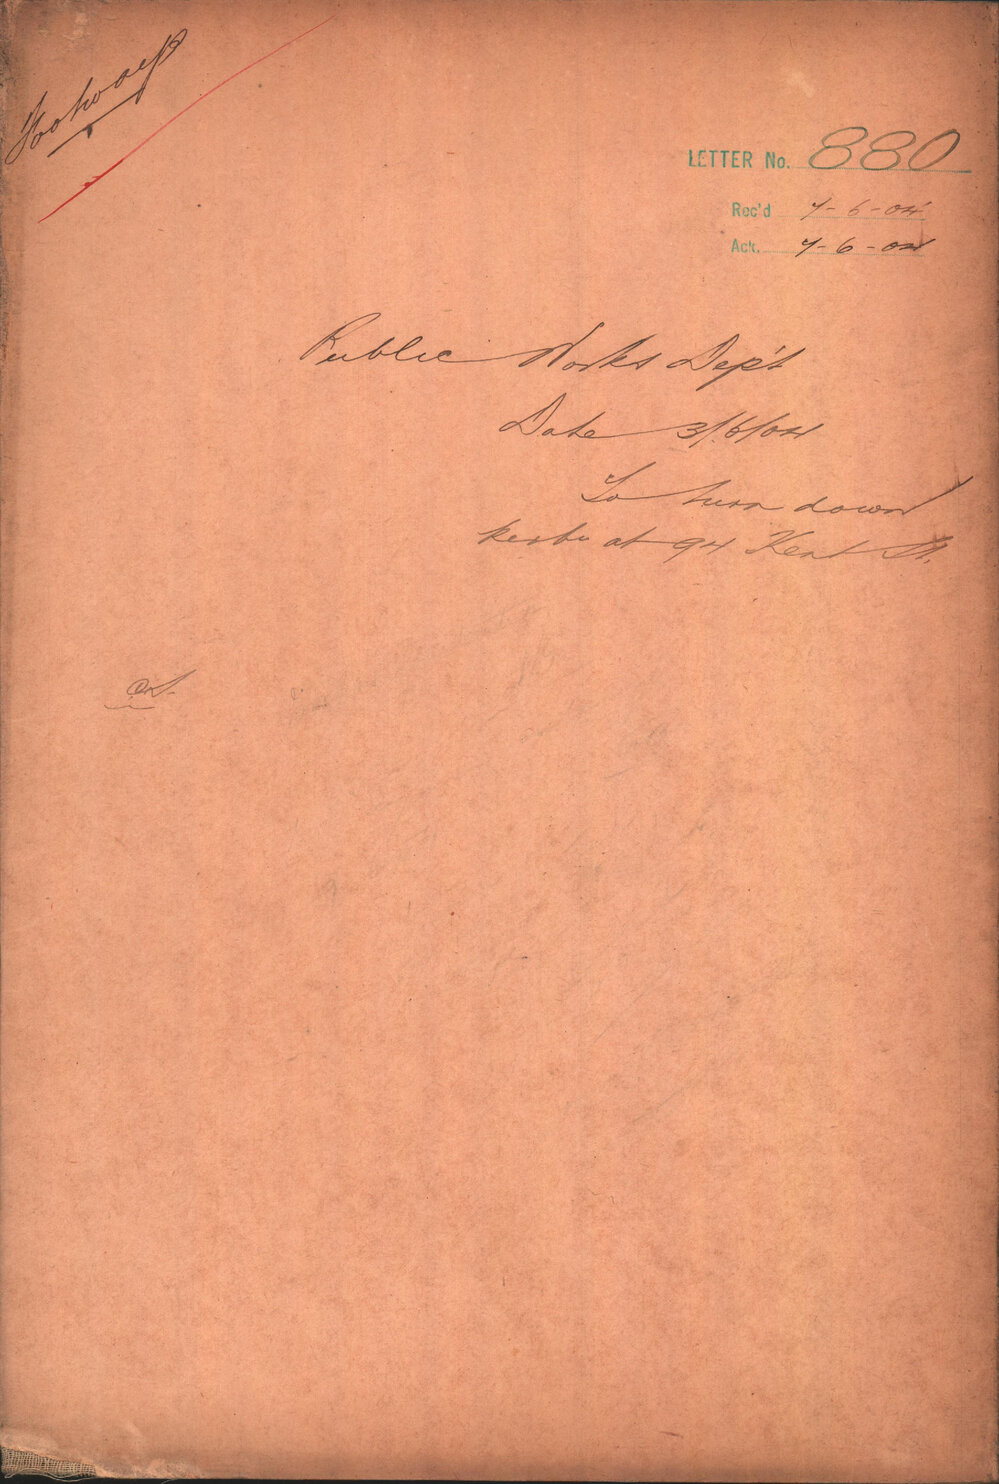 Footways
LETTER No. 880
Rec'd 7-6-04
Ack. 7-6-04
Public Works Dep't
Date 3/6/04
To turn down
kerb at 94 Kent St.